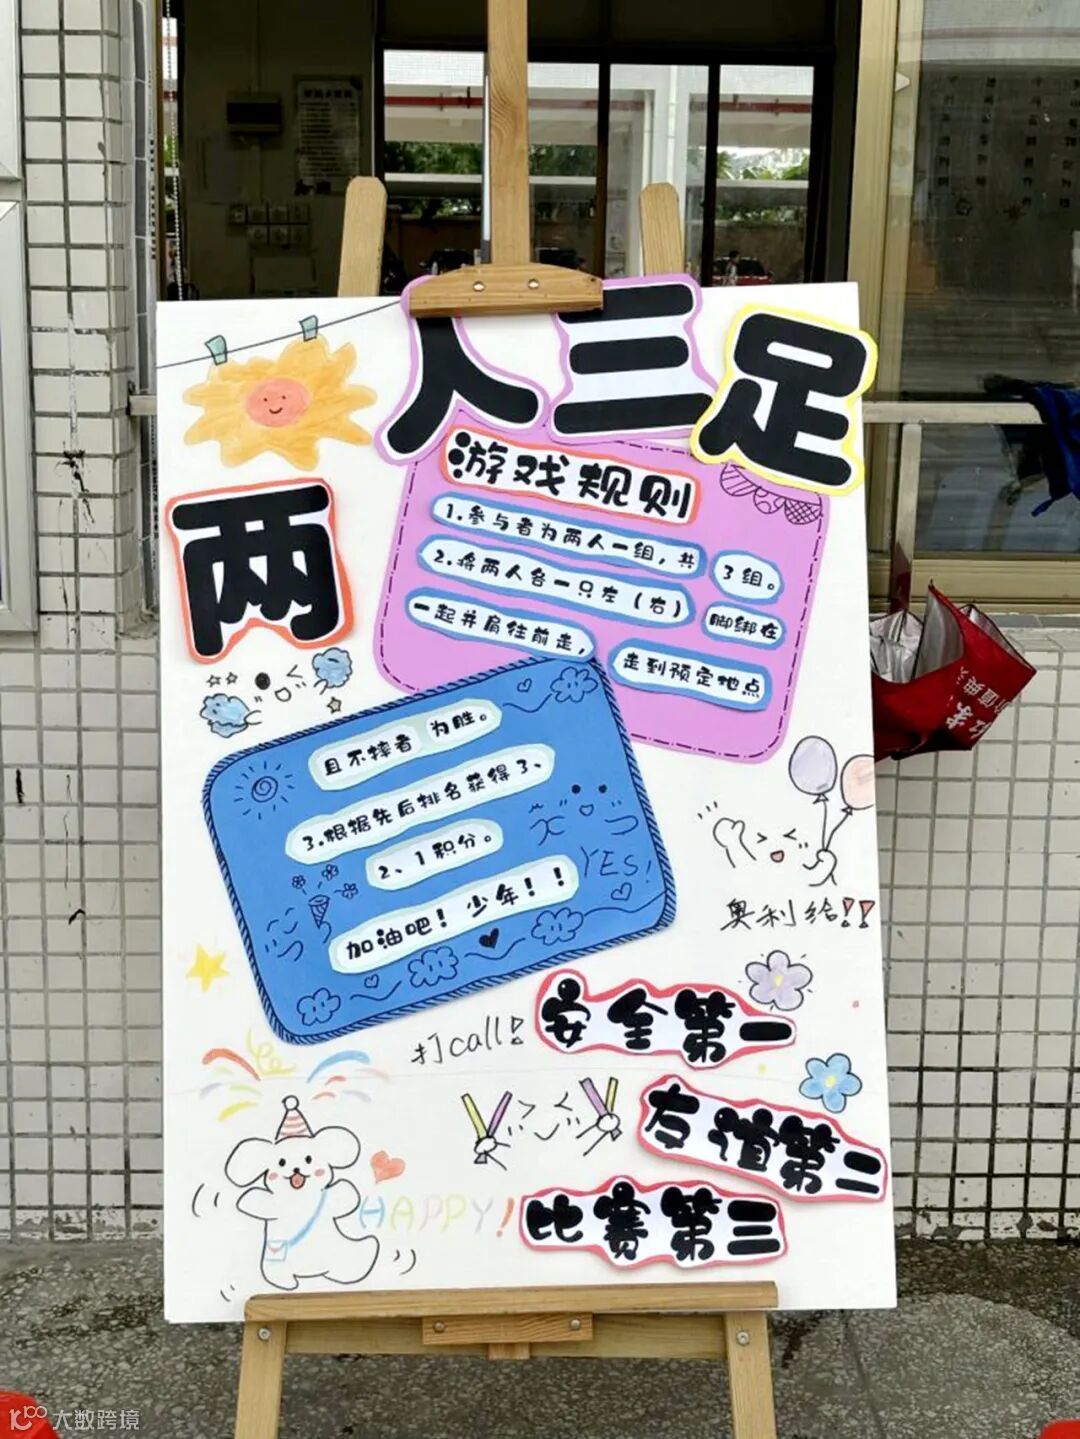 两人三足
游戏规则
1.参与者为两人一组，共3组。
2.将两人各一只左（右）脚绑在
一起并肩往前走，走到预定地点
且不摔者为胜。
3.根据先后排名获得3、
2、1积分。
加油吧！少年！！
YES!
奥利给!!
打call!
安全第一
友谊第二
比赛第三
HAPPY!
大数跨境